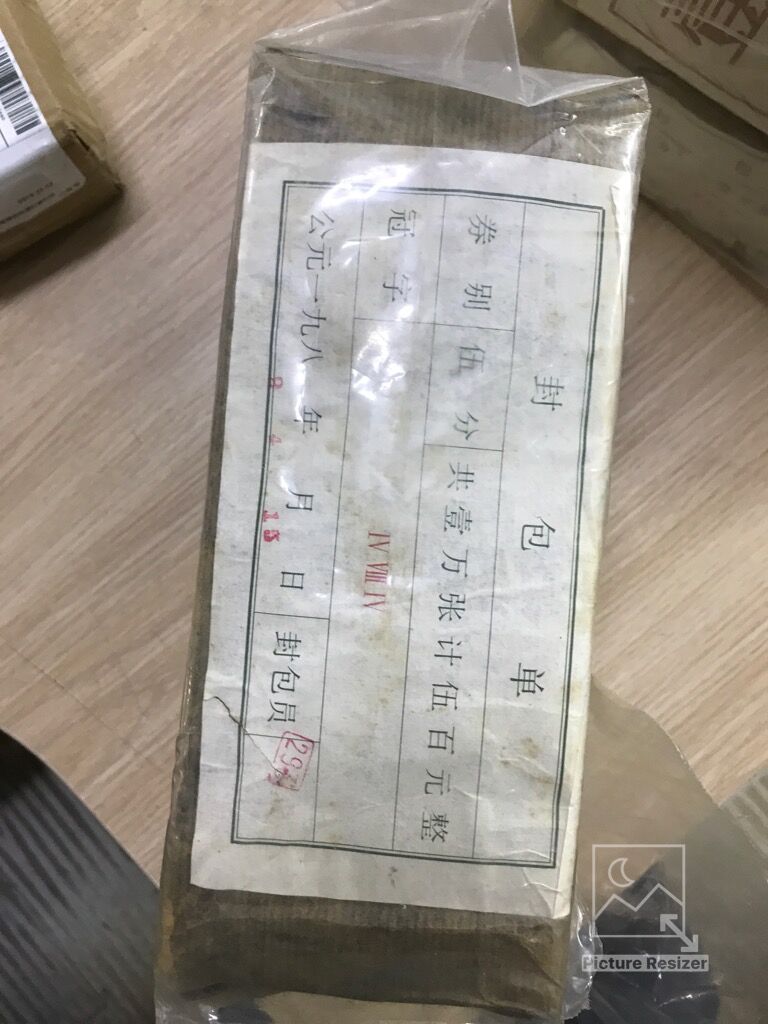 封包单
券别 伍分 共壹万张计伍百元整
冠字 IV VIII IV
公元一九八 年 月 15 日 封包员
Picture Resizer